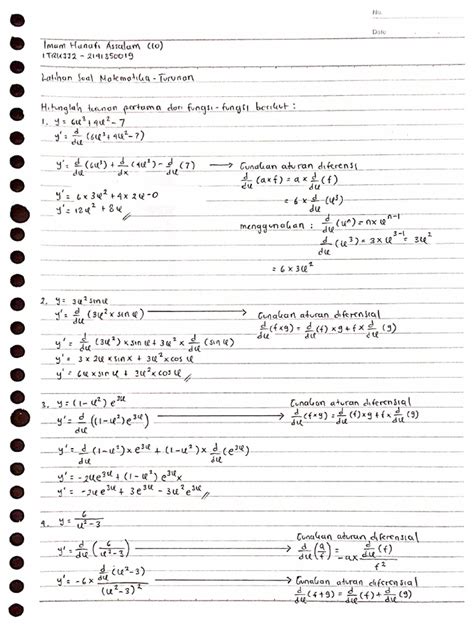 No.
Date
Imam Hanafi Assalam (10)
1TRKJJ2 - 2141350019
Latihan Soal Matematika - Turunan
Hitunglah turunan pertama dari fungsi-fungsi berikut :
1. y = 6x³ + 4x² - 7
y' = d/dx (6x³ + 4x² - 7)
y' = d/dx (6x³) + d/dx (4x²) - d/dx (7) → Gunakan aturan diferensi
d/dx (a x f) = a x d/dx (f)
y' = 6 x 3x² + 4 x 2x - 0
= 6 x d/dx (x³)
y' = 18x² + 8x
menggunakan : d/dx (xⁿ) = n x xⁿ⁻¹
d/dx (x³) = 3 x x³⁻¹ = 3x²
= 6 x 3x²
2. y = 3x² sin x
y' = d/dx (3x² x sin x) → Gunakan aturan diferensial
d/dx (f x g) = d/dx (f) x g + f x d/dx (g)
y' = d/dx (3x²) x sin x + 3x² x d/dx (sin x)
y' = 3 x 2x x sin x + 3x² x cos x
y' = 6x x sin x + 3x² x cos x //
3. y = (1 - x²) e³ˣ
Gunakan aturan diferensial
y' = d/dx ((1 - x²) e³ˣ) → d/dx (f x g) = d/dx (f) x g + f x d/dx (g)
y' = d/dx (1 - x²) x e³ˣ + (1 - x²) x d/dx (e³ˣ)
y' = -2x e³ˣ + (1 - x²) e³ˣ x
y' = -2x e³ˣ + 3 e³ˣ - 3x² e³ˣ //
4. y = 6/(x² - 3)
Gunakan aturan diferensial
y' = d/dx (6/(x² - 3)) → d/dx (a/f) = -a x d/dx (f) / f²
y' = -6 x d/dx (x² - 3) / (x² - 3)² → Gunakan aturan diferensial
d/dx (f + g) = d/dx (f) + d/dx (g)